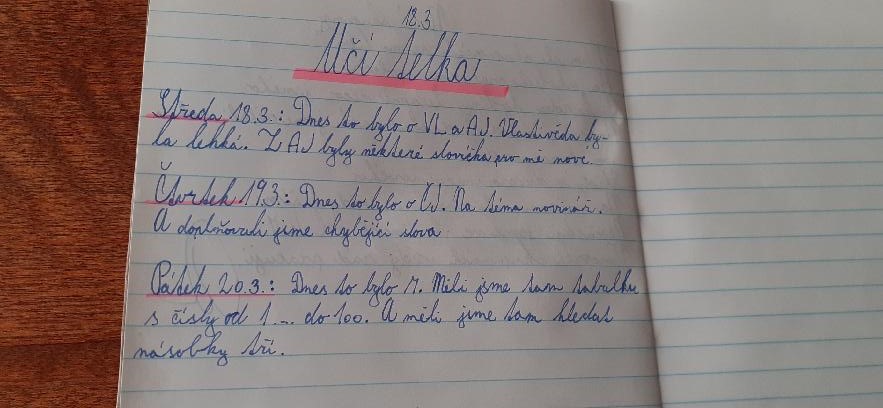 18.3.
Učí telka
Středa 18.3.: Dnes to bylo o VL a AJ. Vlastivěda by-
la lehká. Z AJ byly některé slovíčka pro mě nové.
Čtvrtek 19.3.: Dnes to bylo o ČJ. Na téma novináři.
A doplňovali jsme chybějící slova.
Pátek 20.3.: Dnes to bylo M. Měli jsme tam tabulku
s čísly od 1 ... do 100. A měli jsme tam hledat
násobky tří.